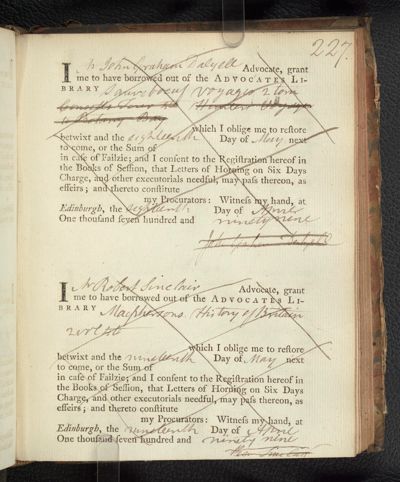 227.
I Mr John Graham Dalyell Advocate, grant
me to have borrowed out of the ADVOCATES LI-
BRARY Sauveboeuf Voyages 2 tom
which I oblige me to reſtore
betwixt and the eighteenth Day of May next
to come, or the Sum of
in caſe of Failzie; and I conſent to the Regiſtration hereof in
the Books of Seſſion, that Letters of Horning on Six Days
Charge, and other executorials needful, may paſs thereon, as
effeirs; and thereto conſtitute
my Procurators: Witneſs my hand, at
Edinburgh, the eighteenth Day of Aprile
One thouſand ſeven hundred and ninety nine
John Graham Dalyell
I Mr Robert Sinclair Advocate, grant
me to have borrowed out of the ADVOCATES LI-
BRARY Macphersons History of Britain
2 vol 4to
which I oblige me to reſtore
betwixt and the nineteenth Day of May next
to come, or the Sum of
in caſe of Failzie; and I conſent to the Regiſtration hereof in
the Books of Seſſion, that Letters of Horning on Six Days
Charge, and other executorials needful, may paſs thereon, as
effeirs; and thereto conſtitute
my Procurators: Witneſs my hand, at
Edinburgh, the nineteenth Day of Aprile
One thouſand ſeven hundred and ninety nine
Sinclair